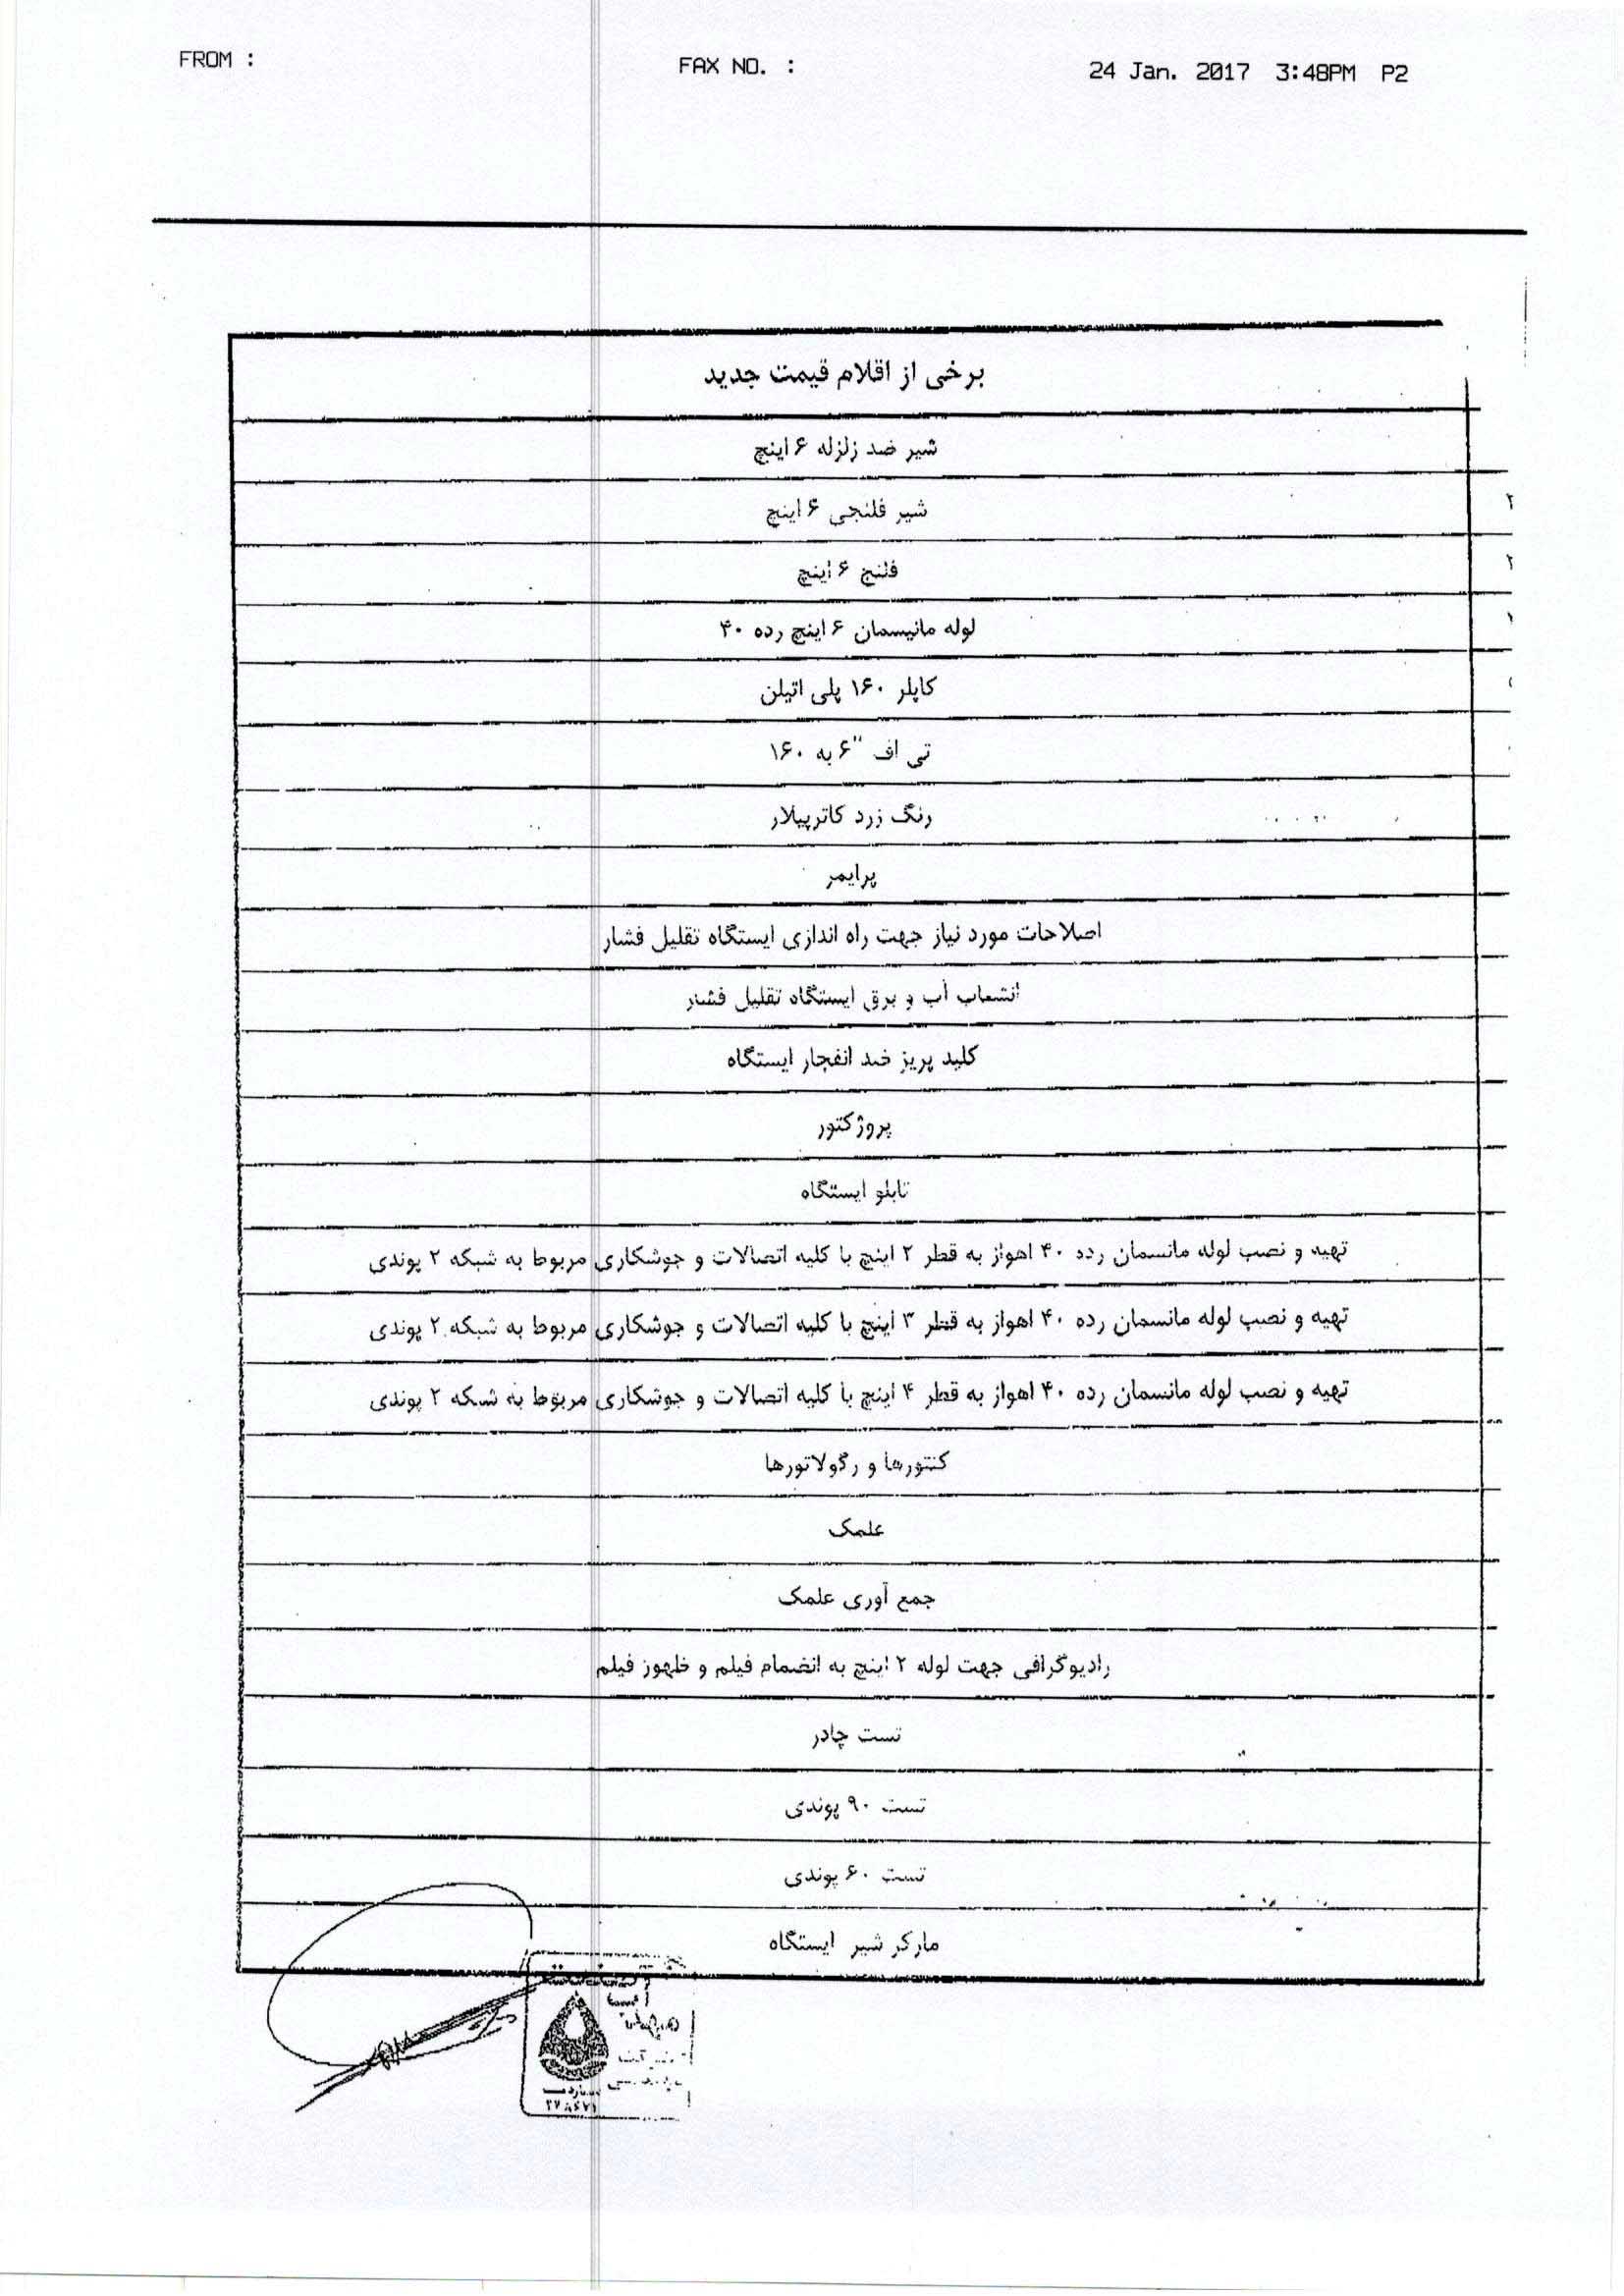 FROM :
FAX NO. :
24 Jan. 2017 3:48PM P2
برخی از اقلام قیمت جدید
شیر ضد زلزله ۶ اینچ
شیر فلنجی ۶ اینچ
۲
فلنج ۶ اینچ
لوله مانیسمان ۶ اینچ رده ۴۰
کاپلر ۱۶۰ پلی اتیلن
تی اف "۶ به ۱۶۰
رنگ زرد کاترپیلار
پرایمر
اصلاحات مورد نیاز جهت راه اندازی ایستگاه تقلیل فشار
انشعاب آب و برق ایستگاه تقلیل فشار
کلید پریز ضد انفجار ایستگاه
پروژکتور
تابلو ایستگاه
تهیه و نصب لوله مانسمان رده ۴۰ اهواز به قطر ۲ اینچ با کلیه اتصالات و جوشکاری مربوط به شبکه ۲ پوندی
تهیه و نصب لوله مانسمان رده ۴۰ اهواز به قطر ۳ اینچ با کلیه اتصالات و جوشکاری مربوط به شبکه ۲ پوندی
تهیه و نصب لوله مانسمان رده ۴۰ اهواز به قطر ۴ اینچ با کلیه اتصالات و جوشکاری مربوط به شبکه ۲ پوندی
کنتورها و رگولاتورها
علمک
جمع آوری علمک
رادیوگرافی جهت لوله ۲ اینچ به انضمام فیلم و ظهور فیلم
تست چادر
تست ۹۰ پوندی
تست ۶۰ پوندی
مارکر شیر ایستگاه